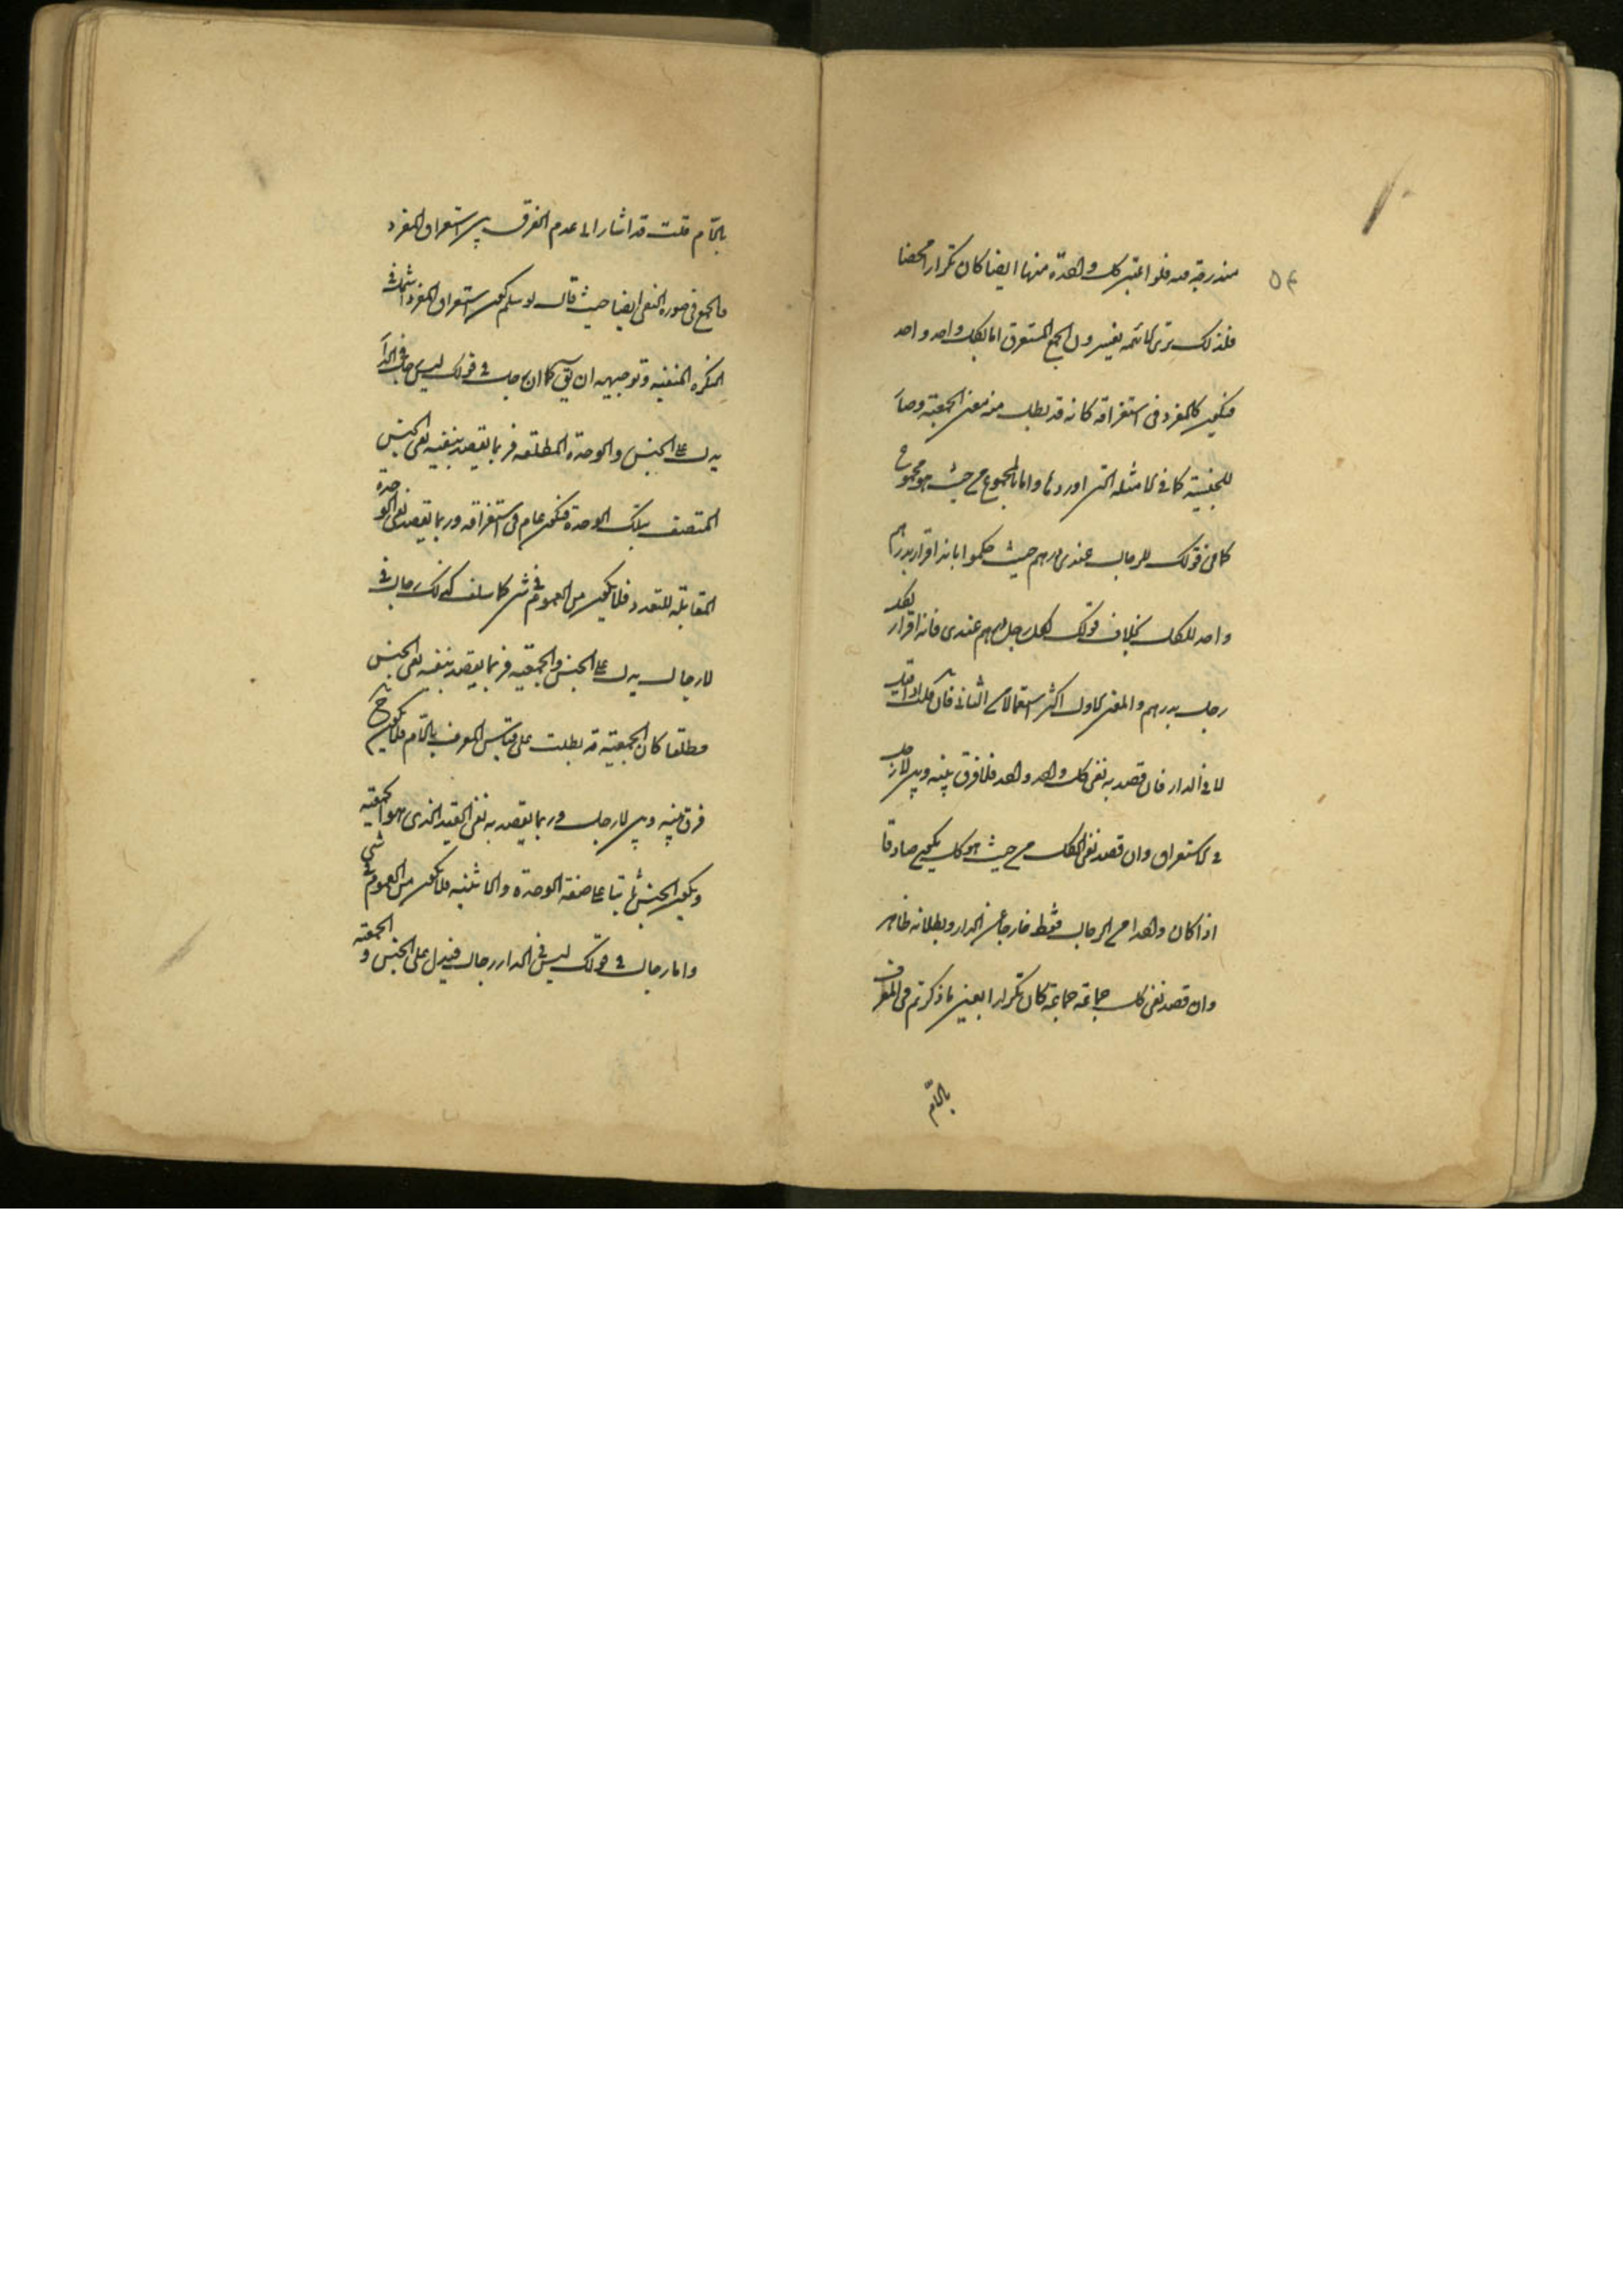 ٥٤
مندرجة فيه فلو اعتبر كل واحدة منها ايضا كان تكرارا محضا
فلذلك ترى الائمه يفسرون الجمع المستغرق اما بكل واحد واحد
فيكون كالمفرد فى استغراقه كانه قد بطل منه معنى الجمعية وصار
للجنسية كما فى الامثله التى اوردها واما بالمجموع من حيث هو مجموع
كما فى قولك للرجال عندى درهم حيث حكموا بانه اقرار بدرهم
واحد للكل بخلاف قولك لكل رجل درهم عندى فانه اقرار لكل
رجل بدرهم والمعنى الاول اكثر استعمالا من الثانى فان قلت اذا قيل
لا فى الدار فان قصد به نفى كل واحد واحد فلا فرق بينه وبين لا رجل
فى الاستغراق وان قصد نفى الكل من حيث هو كل يكون صادقا
اذا كان واحدا من الرجال فقط خارجا عن الدار وبطلانه ظاهر
وان قصد نفى كل جماعة جماعة كان تكرارا بعين ما ذكرتم فى المعرف
باللام
باللام قلت قد اشار الى عدم الفرق بين استغراق المفرد
والجمع فى صورة النفى ايضا حيث قال لو سلم كون استغراق المفرد اشمل فى
النكرة المنفية وتوجيهه ان يق كما ان رجل فى قولك ليس رجل فى الدار
يدل على الجنس والوحدة المطلقه فربما يقصد بنفيه نفى الجنس
المتصف بتلك الوحدة فيكون عام فى استغراقه وربما يقصد نفى الوحدة
المقابلة للتعدد فلا يكون من العموم فى شئ كما سلف كذلك رجال فى
لا رجال يدل على الجنس والجمعية فربما يقصد بنفيه نفى الجنس
مطلقا كان الجمعية قد بطلت على قياس المعرف باللام فلا يكون ح
فرق بينه وبين لا رجل وربما يقصد به نفى القيد الذى هو الجمعية
ويكون الجنس ثابتا على صفة الوحدة والاثنينية فلا يكون من العموم فى شئ
واما رجال فى قولك ليس فى الدار رجال فيدل على الجنس و الجمعية